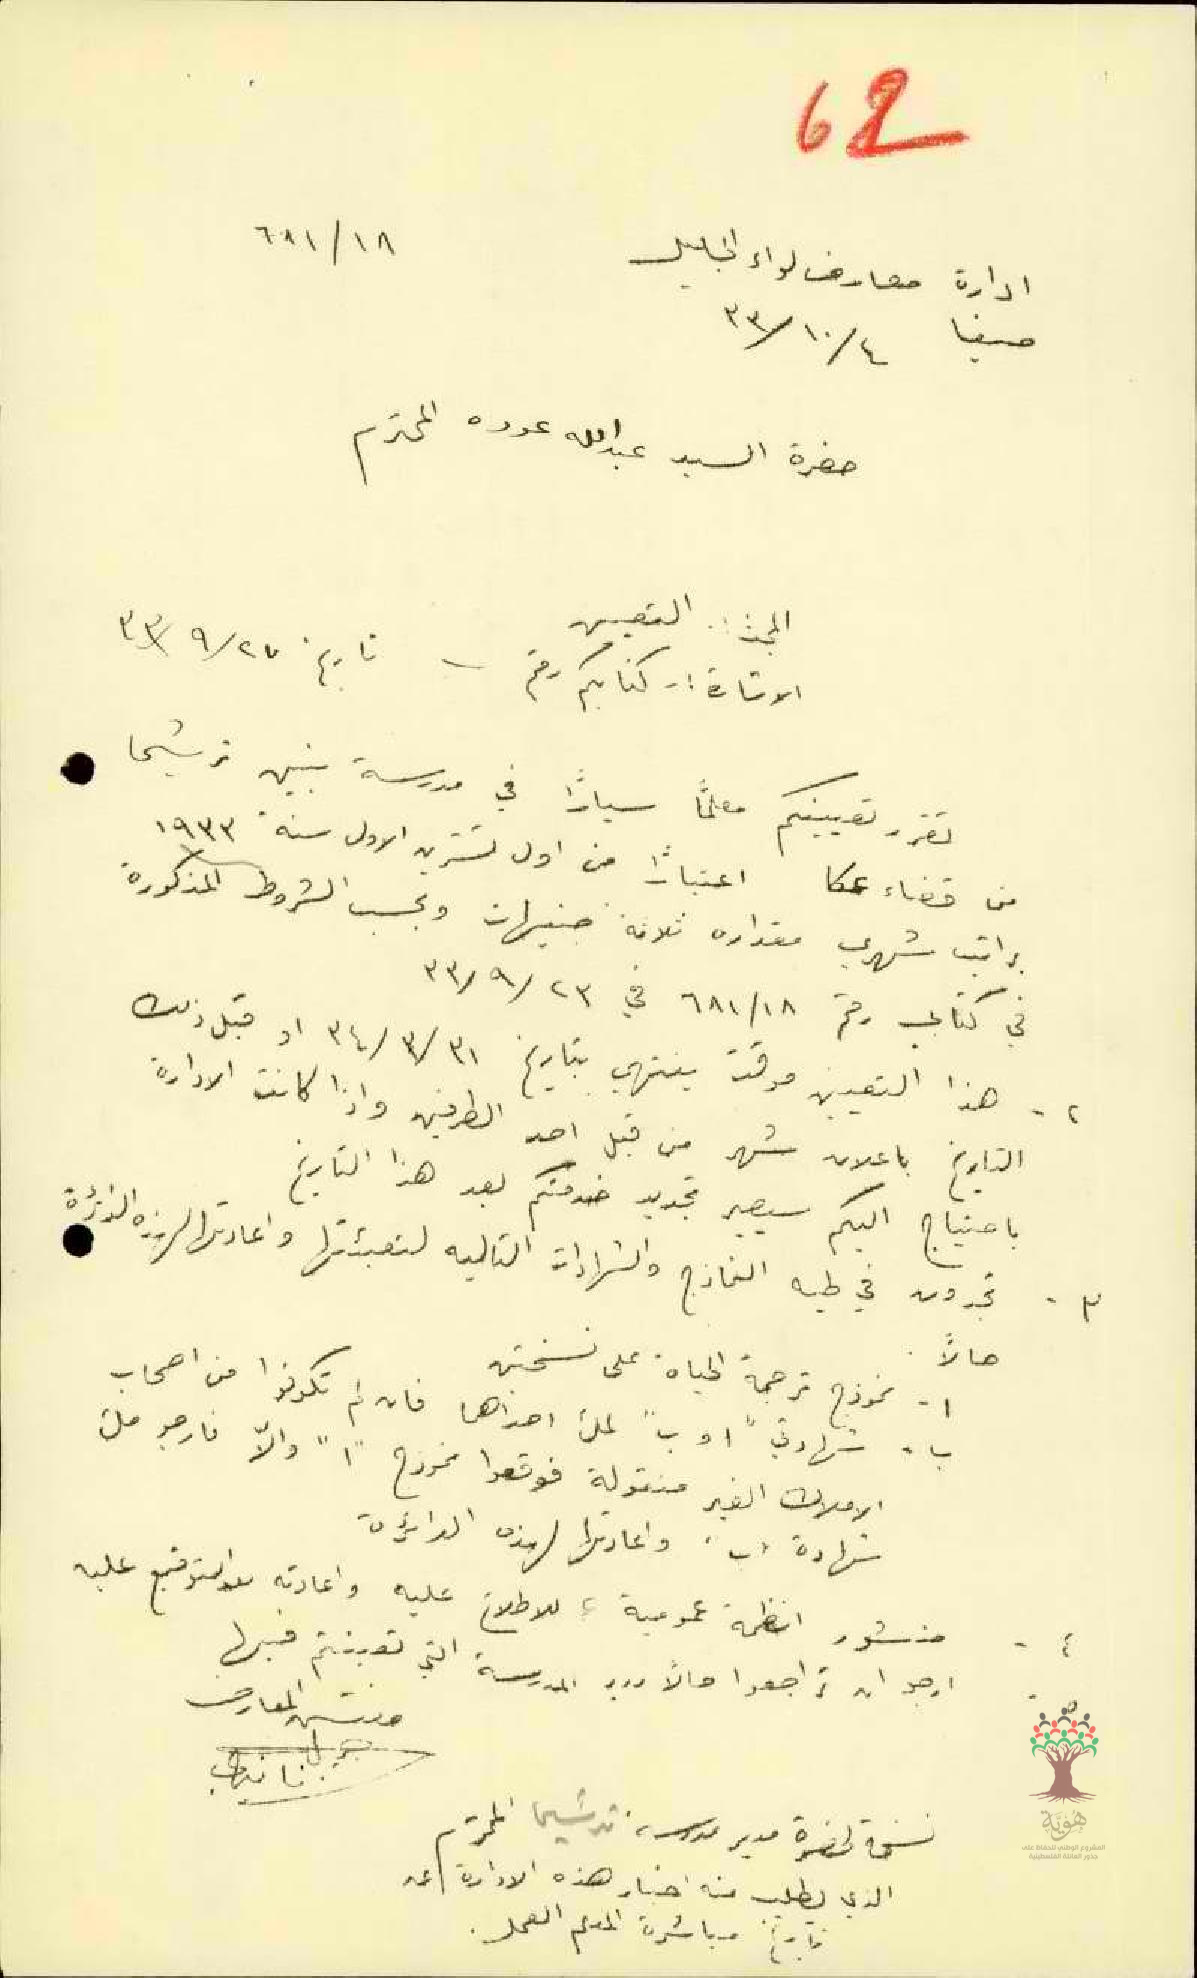 62
ادارة معارف لواء الجليل ٦٨١/١٨
حيفا ٣٣/١٠/٤
حضرة السيد عبدالله عوده المحترم
البحث :. التعيين
الاشارة :- كتابكم رقم - تاريخ ٣٣/٩/٢٧
تقرر تعيينكم معلمًا سيارًا في مدرسة بنين ترشيحا
من قضاء عكا اعتبارًا من اول تشرين الاول سنة ١٩٣٣
براتب شهري مقداره ثلاثة جنيهات وبحسب الشروط المذكورة
في كتابي رقم ٦٨١/١٨ في ٣٣/٩/٢٣
٢ - هذا التعيين موقت ينتهي بتاريخ ٣٤/٣/٣١ او قبل ذلك
التاريخ باعلان شهر من قبل احد الطرفين واذا كانت الادارة
باحتياج اليكم سيصير تجديد خدمتكم بعد هذا التاريخ
٣ - تجدون في طيه النماذج والشهادات التاليه لتعبئتها واعادتها لهذه الدائرة
حالاً .
ا - نموذج ترجمة الحياة على نسختين
ب - شهادتي "ا و ب" لملئ احداها فان لم تكونوا من اصحاب
الاملاك الغير منقولة فوقعوا نموذج "ا" والاّ فارجو ملئ
شهادة "ب" واعادتها لهذه الدائرة
٤ - منشور انظمة عمومية للاطلاع عليه واعادته بعد التوقيع عليه
٥ - ارجو ان تراجعوا حالاً مدير المدرسة التي تعينتم فيها
مفتش المعارف
نسخة لحضرة مدير مدرسة ترشيحا المحترم
الذي يطلب منه اخبار هذه الادارة عن
تاريخ مباشرة المعلم العمل .
هُوِيَّة
المشروع الوطني للحفاظ على
جذور العائلة الفلسطينية